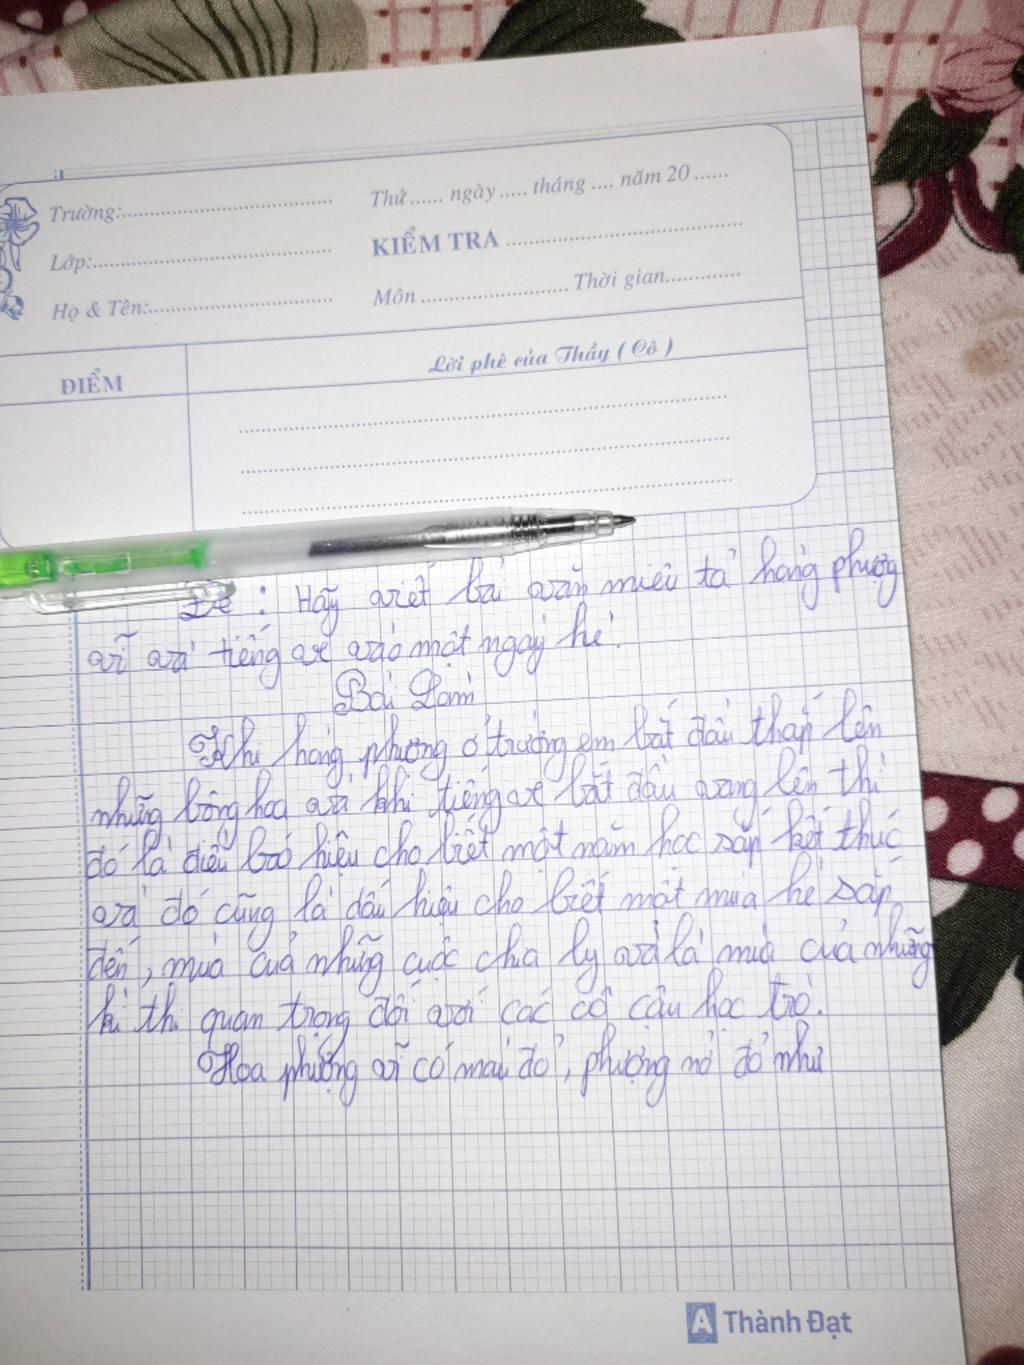 Trường:
Thứ ...... ngày ..... tháng .... năm 20 ......
Lớp:
KIỂM TRA
Họ & Tên:
Môn ........................ Thời gian
ĐIỂM
Lời phê của Thầy ( Cô )
Đề : Hãy viết bài văn miêu tả hàng phượng
vĩ và tiếng ve vào một ngày hè.
Bài Làm
Khi hàng phượng ở trường em bắt đầu thắp lên
những bông hoa và khi tiếng ve bắt đầu vang lên thì
đó là điều báo hiệu cho biết một năm học sắp kết thúc
và đó cũng là dấu hiệu cho biết một mùa hè sắp
đến, mùa của những cuộc chia ly và là mùa của những
kì thi quan trọng đối với các cô cậu học trò.
Hoa phượng vĩ có màu đỏ, phượng nở đỏ như
A Thành Đạt